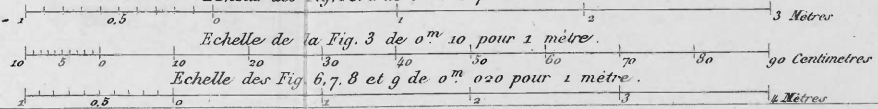 1 0,5 0 1 2 3 Mètres
Echelle de la Fig. 3 de 0m. 10 pour 1 mètre.
10 5 0 10 20 30 40 50 60 70 80 90 Centimetres
Echelle des Fig. 6, 7, 8 et 9 de 0m 020 pour 1 mètre.
1 0,5 0 1 2 3 4 Mètres